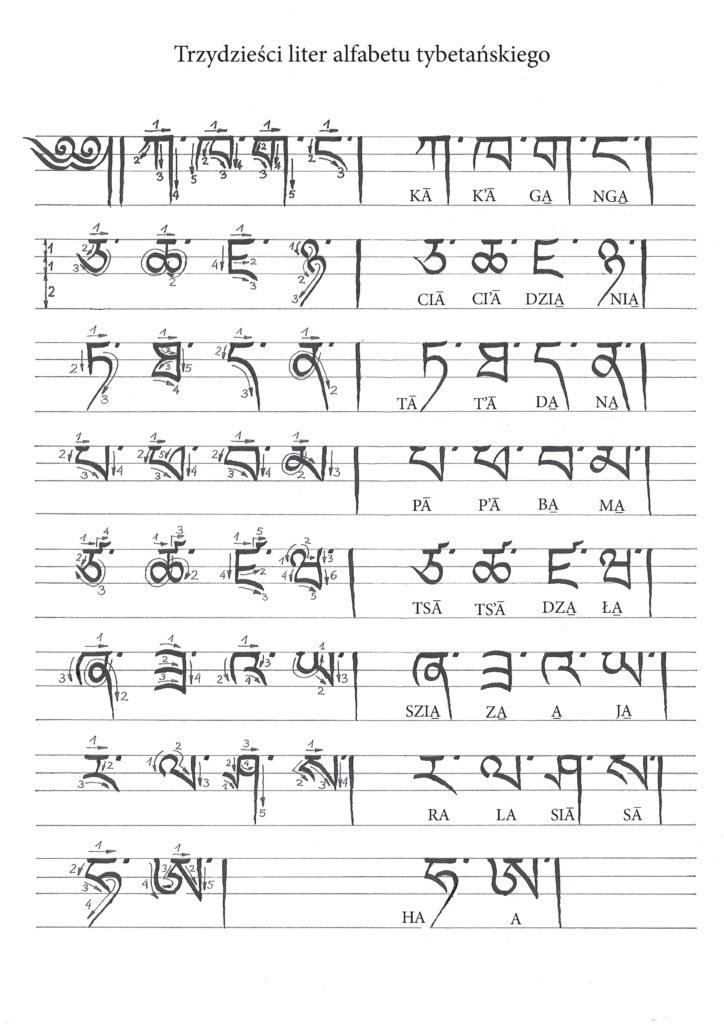 Trzydzieści liter alfabetu tybetańskiego
༄༅།།ཀ་ཁ་ག་ང་། ཀ་ཁ་ག་ང་།
KĀ K'Ā GA̱ NGA̱
ཅ་ཆ་ཇ་ཉ་། ཅ་ཆ་ཇ་ཉ་།
CIĀ CI'Ā DZIA̱ NIA̱
ཏ་ཐ་ད་ན་། ཏ་ཐ་ད་ན་།
TĀ T'Ā DA̱ NA̱
པ་ཕ་བ་མ་། པ་ཕ་བ་མ་།
PĀ P'Ā BA̱ MA̱
ཙ་ཚ་ཛ་ཝ་། ཙ་ཚ་ཛ་ཝ་།
TSĀ TS'Ā DZA̱ ŁA̱
ཞ་ཟ་འ་ཡ་། ཞ་ཟ་འ་ཡ་།
SZIA̱ ZA̱ A̱ JA̱
ར་ལ་ཤ་ས་། ར་ལ་ཤ་ས་།
RA LA SIĀ SĀ
ཧ་ཨ་། ཧ་ཨ་།
HA A